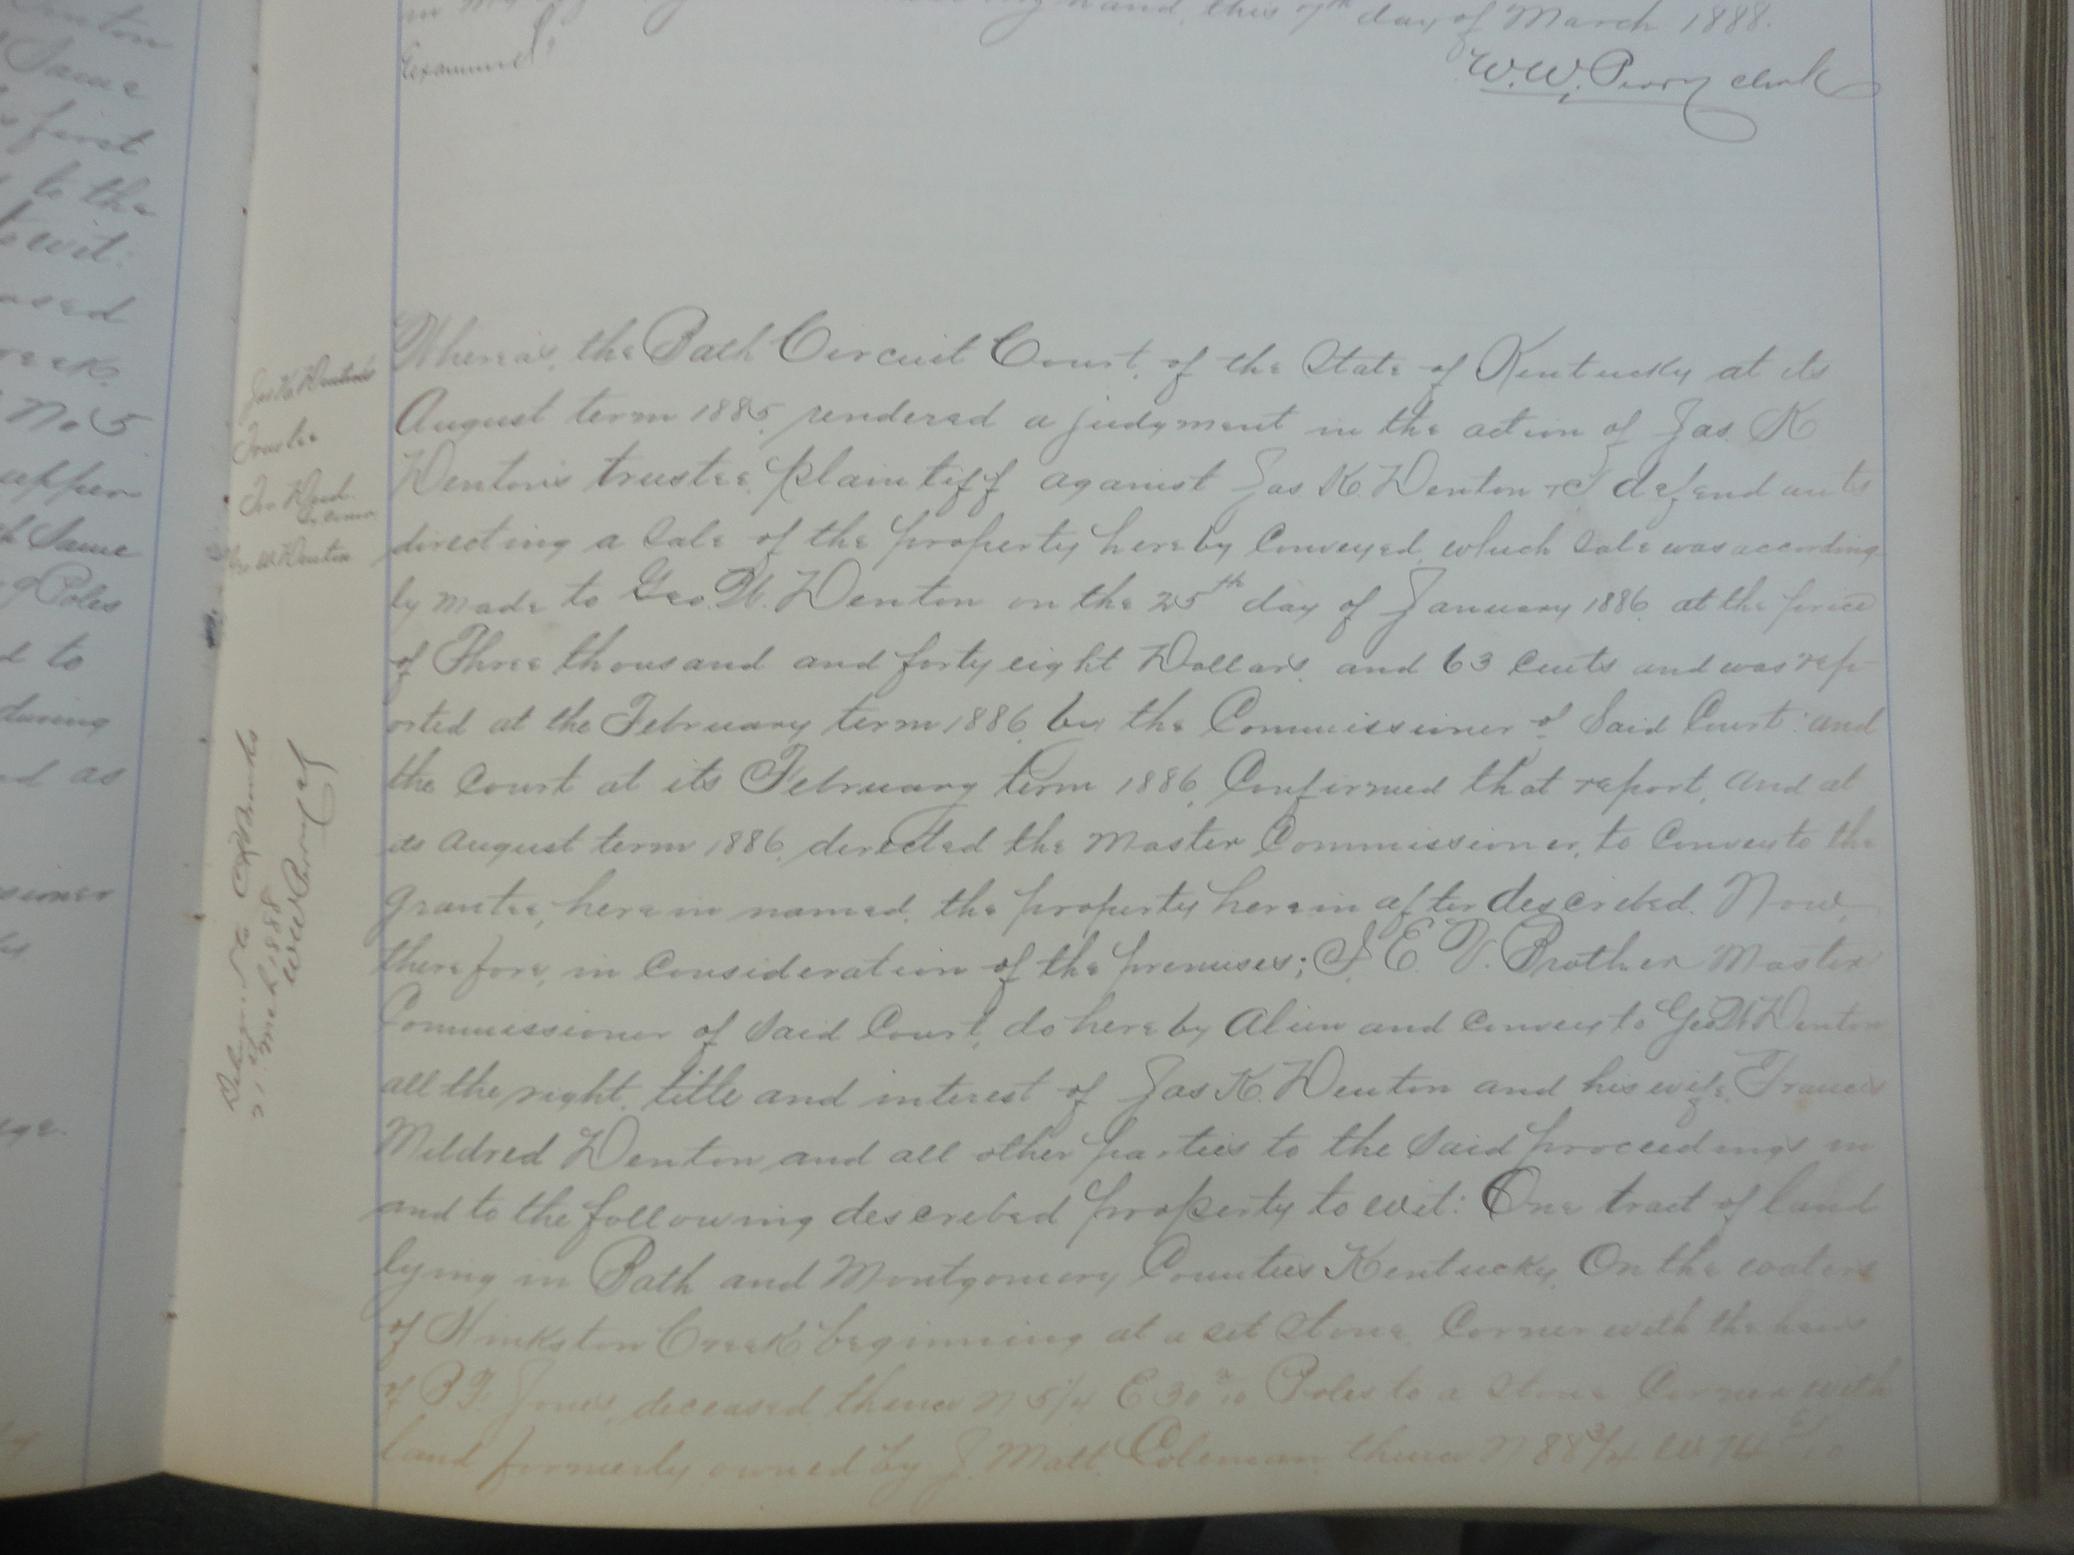 hand, this 7th day of March 1888.
Examined
W. W. Perry clerk
Whereas, the Bath Circuit Court, of the State of Kentucky at its
August term 1885, rendered a judgment in the action of Jas K
Denton's trustee, plaintiff against Jas K. Denton &c defendants
directing a Sale of the property hereby Conveyed, which Sale was according
ly made to Geo. W. Denton on the 25th day of January 1886. at the price
of Three thousand and forty eight Dollars, and 63 cents and was rep-
orted at the February term 1886, by the Commissioner of Said Court: and
the Court at its February term 1886, Confirmed that report, and at
its August term 1886, directed the Master Commissioner, to Convey to the
grantee, herein named, the property herein after described. Now,
therefore, in consideration of the premises; I, E. V. Brother Master
Commissioner of Said Court, do hereby Alien and convey to Geo W Denton
all the right, title and interest of Jas K. Denton and his wife, Frances
Mildred Denton and all other parties to the Said proceedings in
and to the following described property to wit: One tract of land
lying in Bath and Montgomery Counties Kentucky, On the waters
of Hinkston Creek beginning at a set Stone Corner with the heirs
of Jones, deceased, thence N 5 1/4 E 30 Poles to a Stone Corner with
land formerly owned by J. Matt. Coleman thence N 88 3/4 W
Jas K Denton's
Trustee
To Deed
Geo W Denton
Delivered to
21 March 1888
W W Perry clk
Same
first
to the
to wit:
No 5
Same
Poles
to
during
as